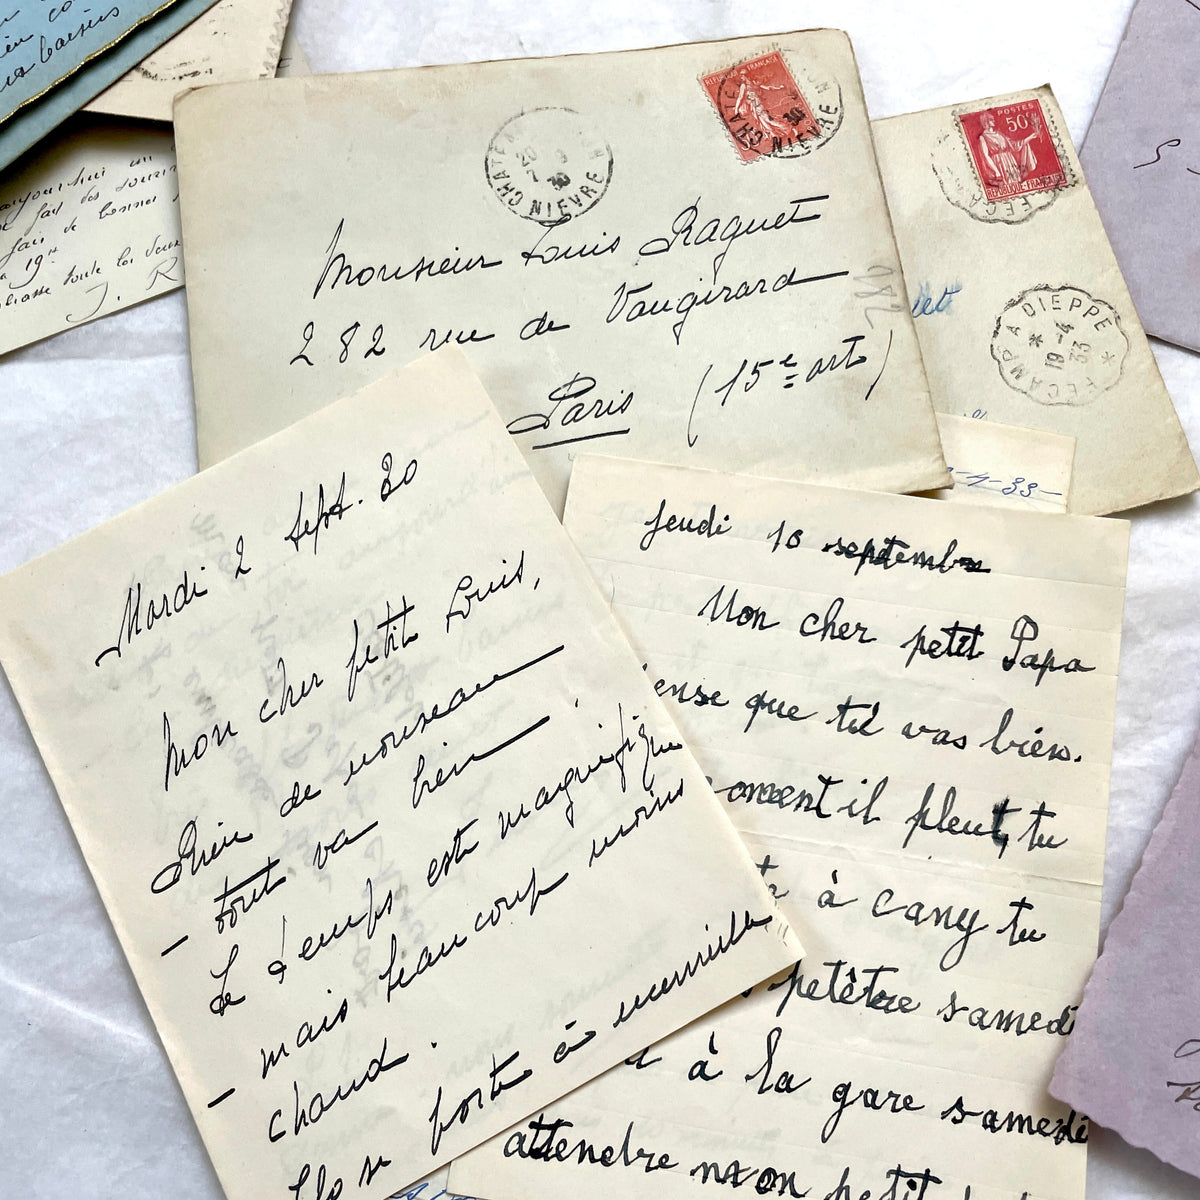 baisers
aujourd'hui un
fait des
fair de
19
toute la
J. R
REPUBLIQUE FRANÇAISE
NIEVRE
CHATE
NIEVRE
30
Monsieur Louis Raguet
282 rue de Vaugirard
Paris (15e art)
182
POSTES
50c
REPUBLIQUE FRANÇAISE
FECA
FECAMP A DIEPPE
19-4
33
-4-33-
Mardi 2 Sept. 30
Mon cher petit Louis,
Rien de nouveau
- tout va bien.
Le temps est magnifique
- mais beaucoup moins
chaud.
se porte à merveille
Jeudi 10 septembre
Mon cher petit Papa
ense que tu vas bien.
oment il pleut, tu
à cany tu
petêtre samedi
à la gare samedi
attendre mon petit